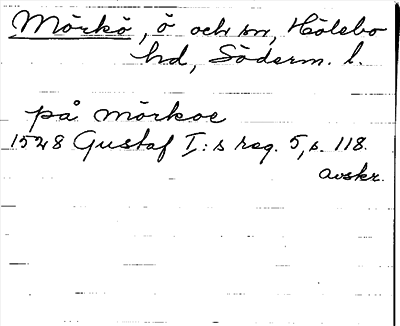 Mörkö, ö och sn, Hölebo
hd, Söderm. l.
på mörkoe
1528 Gustaf I:s reg. 5, s. 118.
avskr.